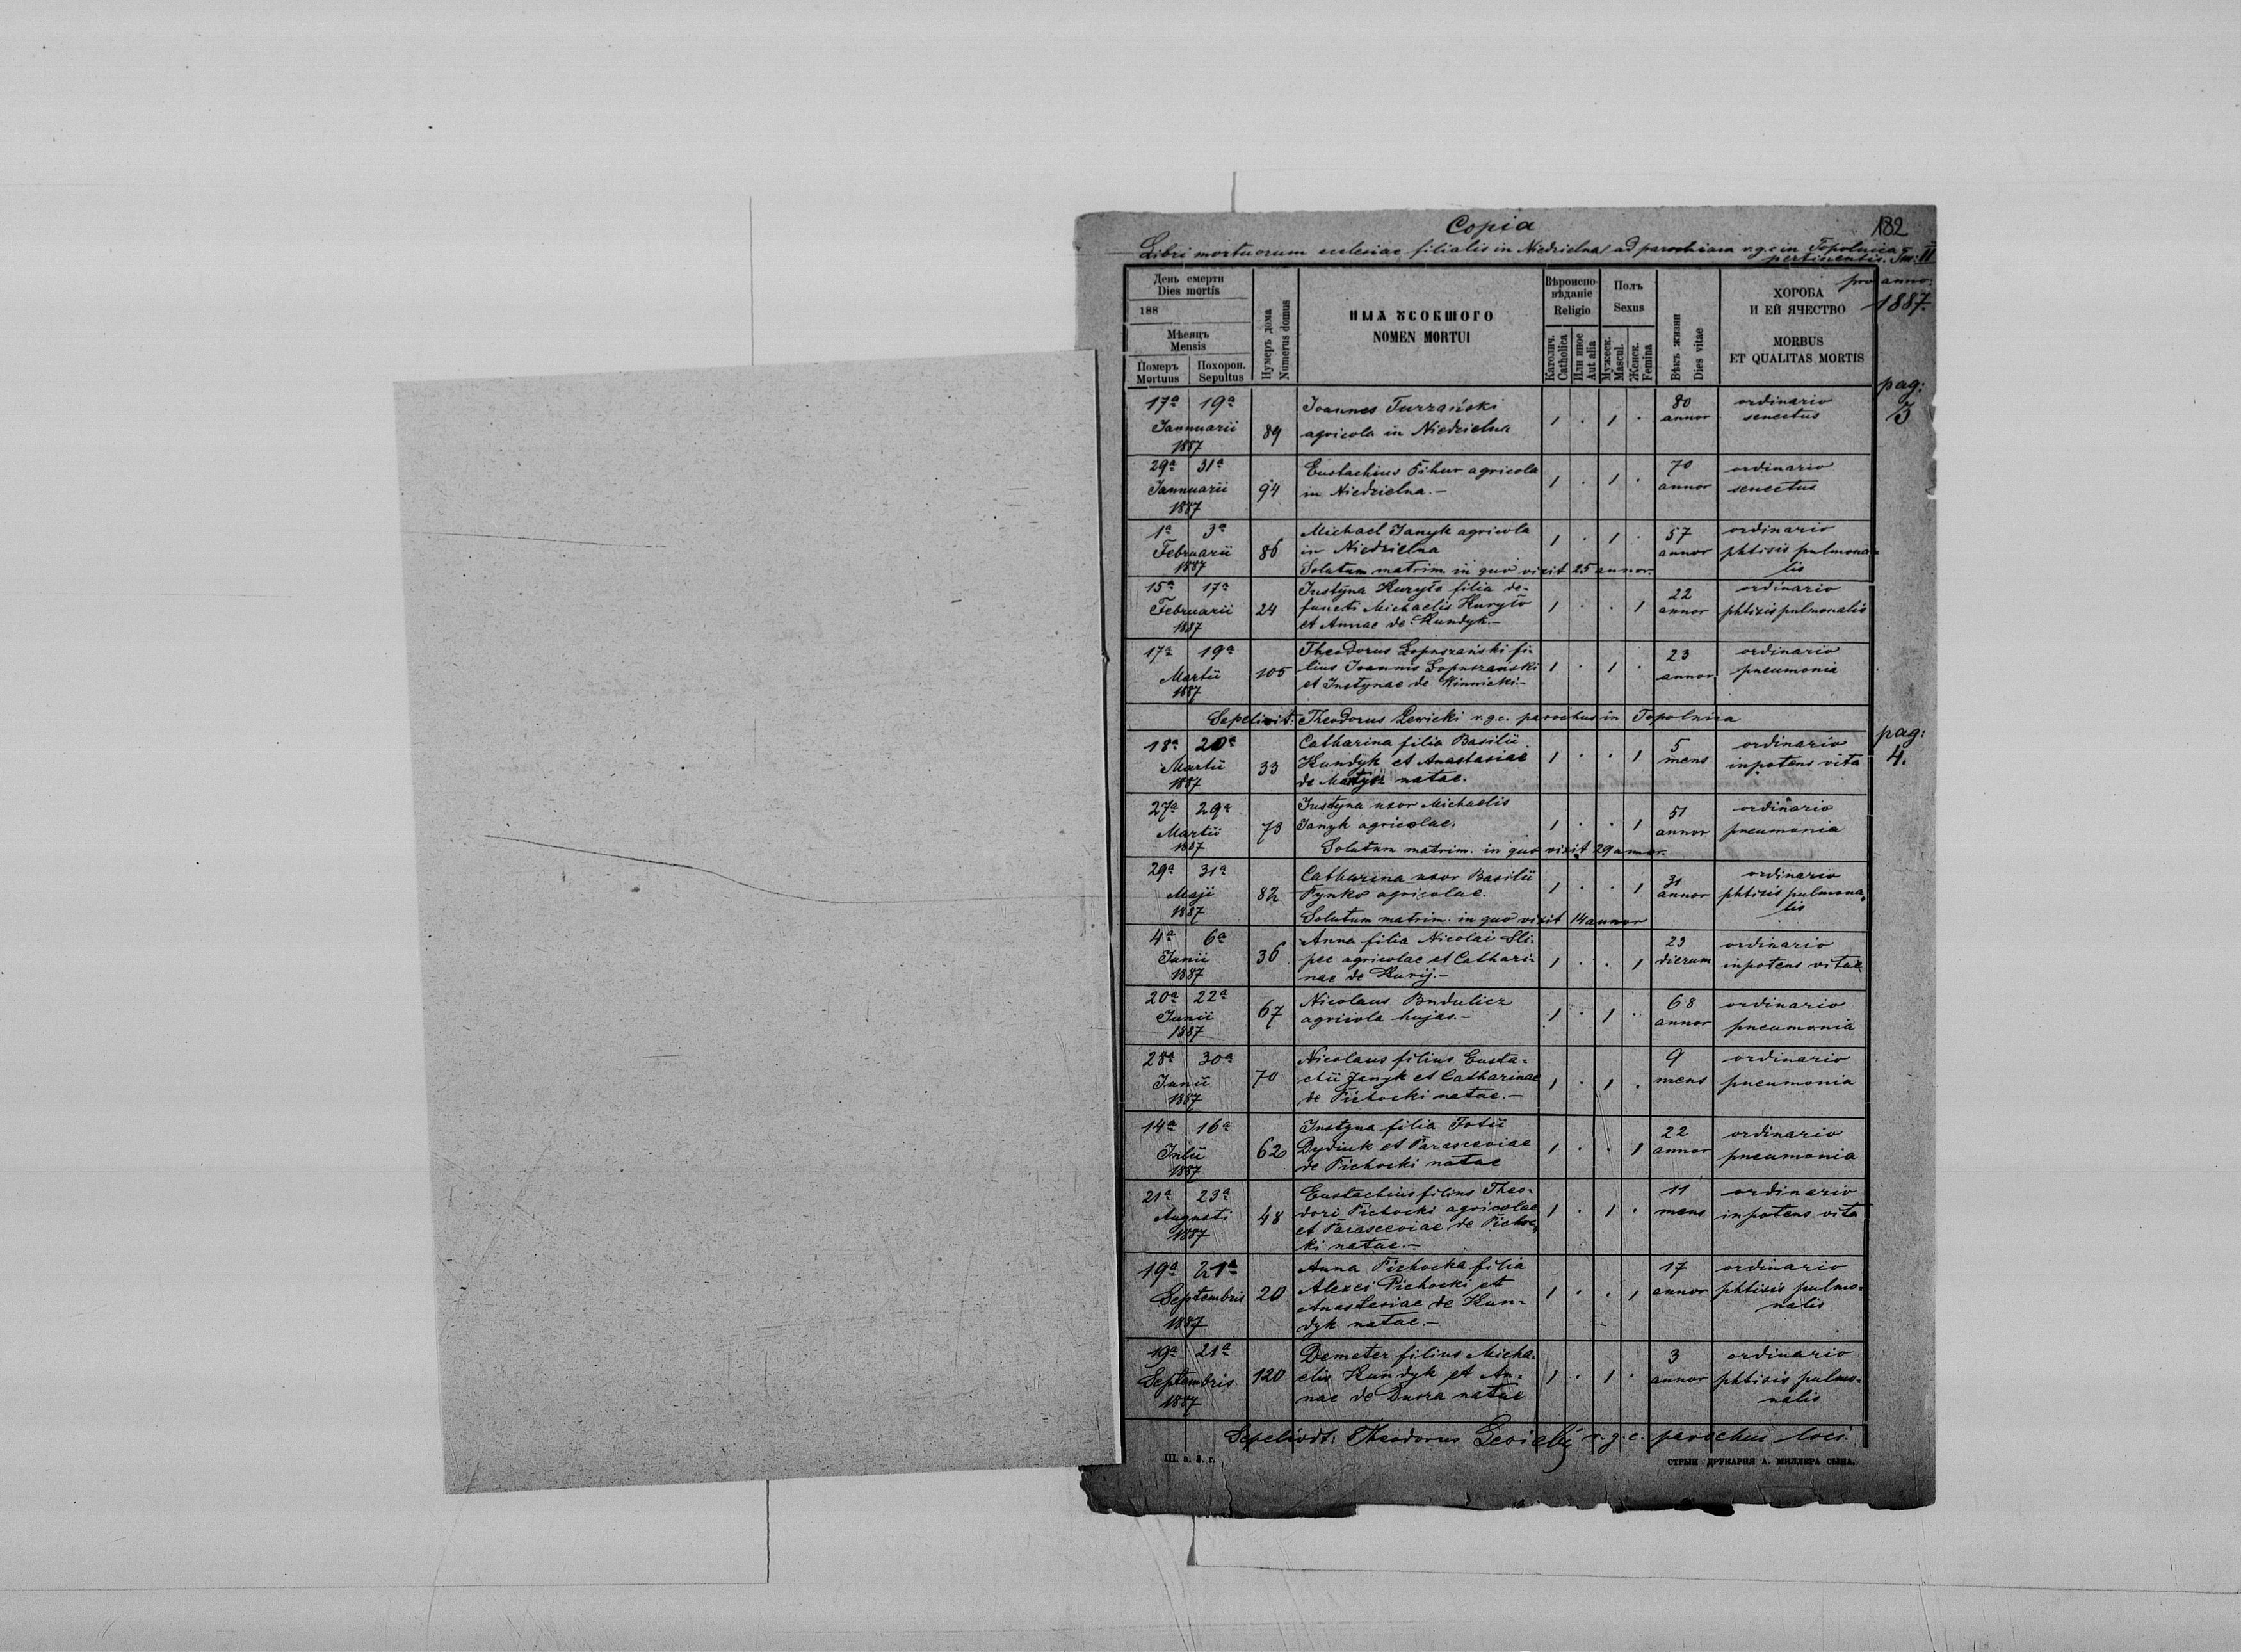 Copia
182
Libri mortuorum ecclesiae filialis in Niedzielna ad parochiam r.g.c. in Topolnica
pertinentis. Tm: II
pro anno:
1887.
День смерти
Dies mortis
188
Мѣсяць
Mensis
Померъ
Mortuus
Похорон.
Sepultus
Нумеръ дома
Numerus domus
ИМЯ УСОПШОГО
NOMEN MORTUI
Вѣроиспо-
вѣданіе
Religio
Католич.
Catholica
Или иное
Aut alia
Полъ
Sexus
Мужеск.
Mascul.
Женск.
Femina
Вѣкъ жизни
Dies vitae
ХОРОБА
И ЕЙ ЯЧЕСТВО
MORBUS
ET QUALITAS MORTIS
pag:
3
17a 19a
Jannuarii
1887
89
Joannes Turzański
agricola in Niedzielna
1 . 1 .
80
annor
ordinario
senectus
29a 31a
Jannuarii
1887
94
Eustachius Fihur agricola
in Niedzielna.-
1 . 1 .
70
annor
ordinario
senectus
1a 3a
Februarii
1887
86
Michael Janyk agricola
in Niedzielna
Solutum matrim. in quo vixit 25 annor.
1 . 1 .
57
annor
ordinario
phtisis pulmona-
lis
15a 17a
Februarii
1887
24
Justyna Kuryło filia de-
functi Michaelis Kuryło
et Annae de Kundyk.-
1 . . 1
22
annor
ordinario
phtisis pulmonalis
17a 19a
Martii
1887
105
Theodorus Łopuszański fi-
lius Joannis Łopuszanski
et Justynae de Winnicki.-
1 . 1 .
23
annor
ordinario
pneumonia
Sepelivit: Theodorus Lewicki r.g.c. parochus in Topolnica
pag:
4.
18a 20a
Martii
1887
33
Catharina filia Basilii
Kundyk et Anastasiae
de natae.
1 . . 1
5
mens
ordinario
inpotens vita
27a 29a
Martii
1887
73
Justyna uxor Michaelis
Janyk agricolae.
Solutum matrim. in quo vixit 29 annor.
1 . . 1
51
annor
ordinario
pneumonia
29a 31a
Maji
1887
82
Catharina uxor Basilii
Fynko agricolae.
Solutum matrim. in quo vixit 14 annor
1 . . 1
31
annor
ordinario
phtisis pulmona-
lis
4a 6a
Junii
1887
36
Anna filia Nicolai Sli-
pec agricolae et Cathari-
nae de Kurij.-
1 . . 1
23
dierum
ordinario
inpotens vitae
20a 22a
Junii
1887
67
Nicolaus Budulicz
agricola hujas.-
1 . 1 .
68
annor
ordinario
pneumonia
28a 30a
Junii
1887
70
Nicolaus filius Eusta-
chii Janyk et Catharinae
de Pichocki natae.-
1 . 1 .
9
mens
ordinario
pneumonia
14a 16a
Julii
1887
62
Justyna filia Fotii
Dydiuk et Parasceviae
de Pichocki natae
1 . . 1
22
annor
ordinario
pneumonia
21a 23a
Augusti
1887
48
Eustachius filius Theo-
dori Pichocki agricolae
et Parasceviae de Picho-
ki natae.-
1 . 1 .
11
mens
ordinario
inpotens vita
19a 21a
Septembris
1887
20
Anna Pichocka filia
Alexei Pichocki et
Anastasiae de Kun-
dyk natae.-
1 . . 1
17
annor
ordinario
phtisis pulmo-
nalis
19a 21a
Septembris
1887
120
Demeter filius Micha-
elis Kundyk et An-
nae de natae
1 . 1 .
3
annor
ordinario
phtisis pulmo-
nalis
Sepelivit: Theodorus Lewicky r.g.c. parochus loci.
СТРЫЙ ДРУКАРНЯ А. МИЛЛЕРА СЫНА.